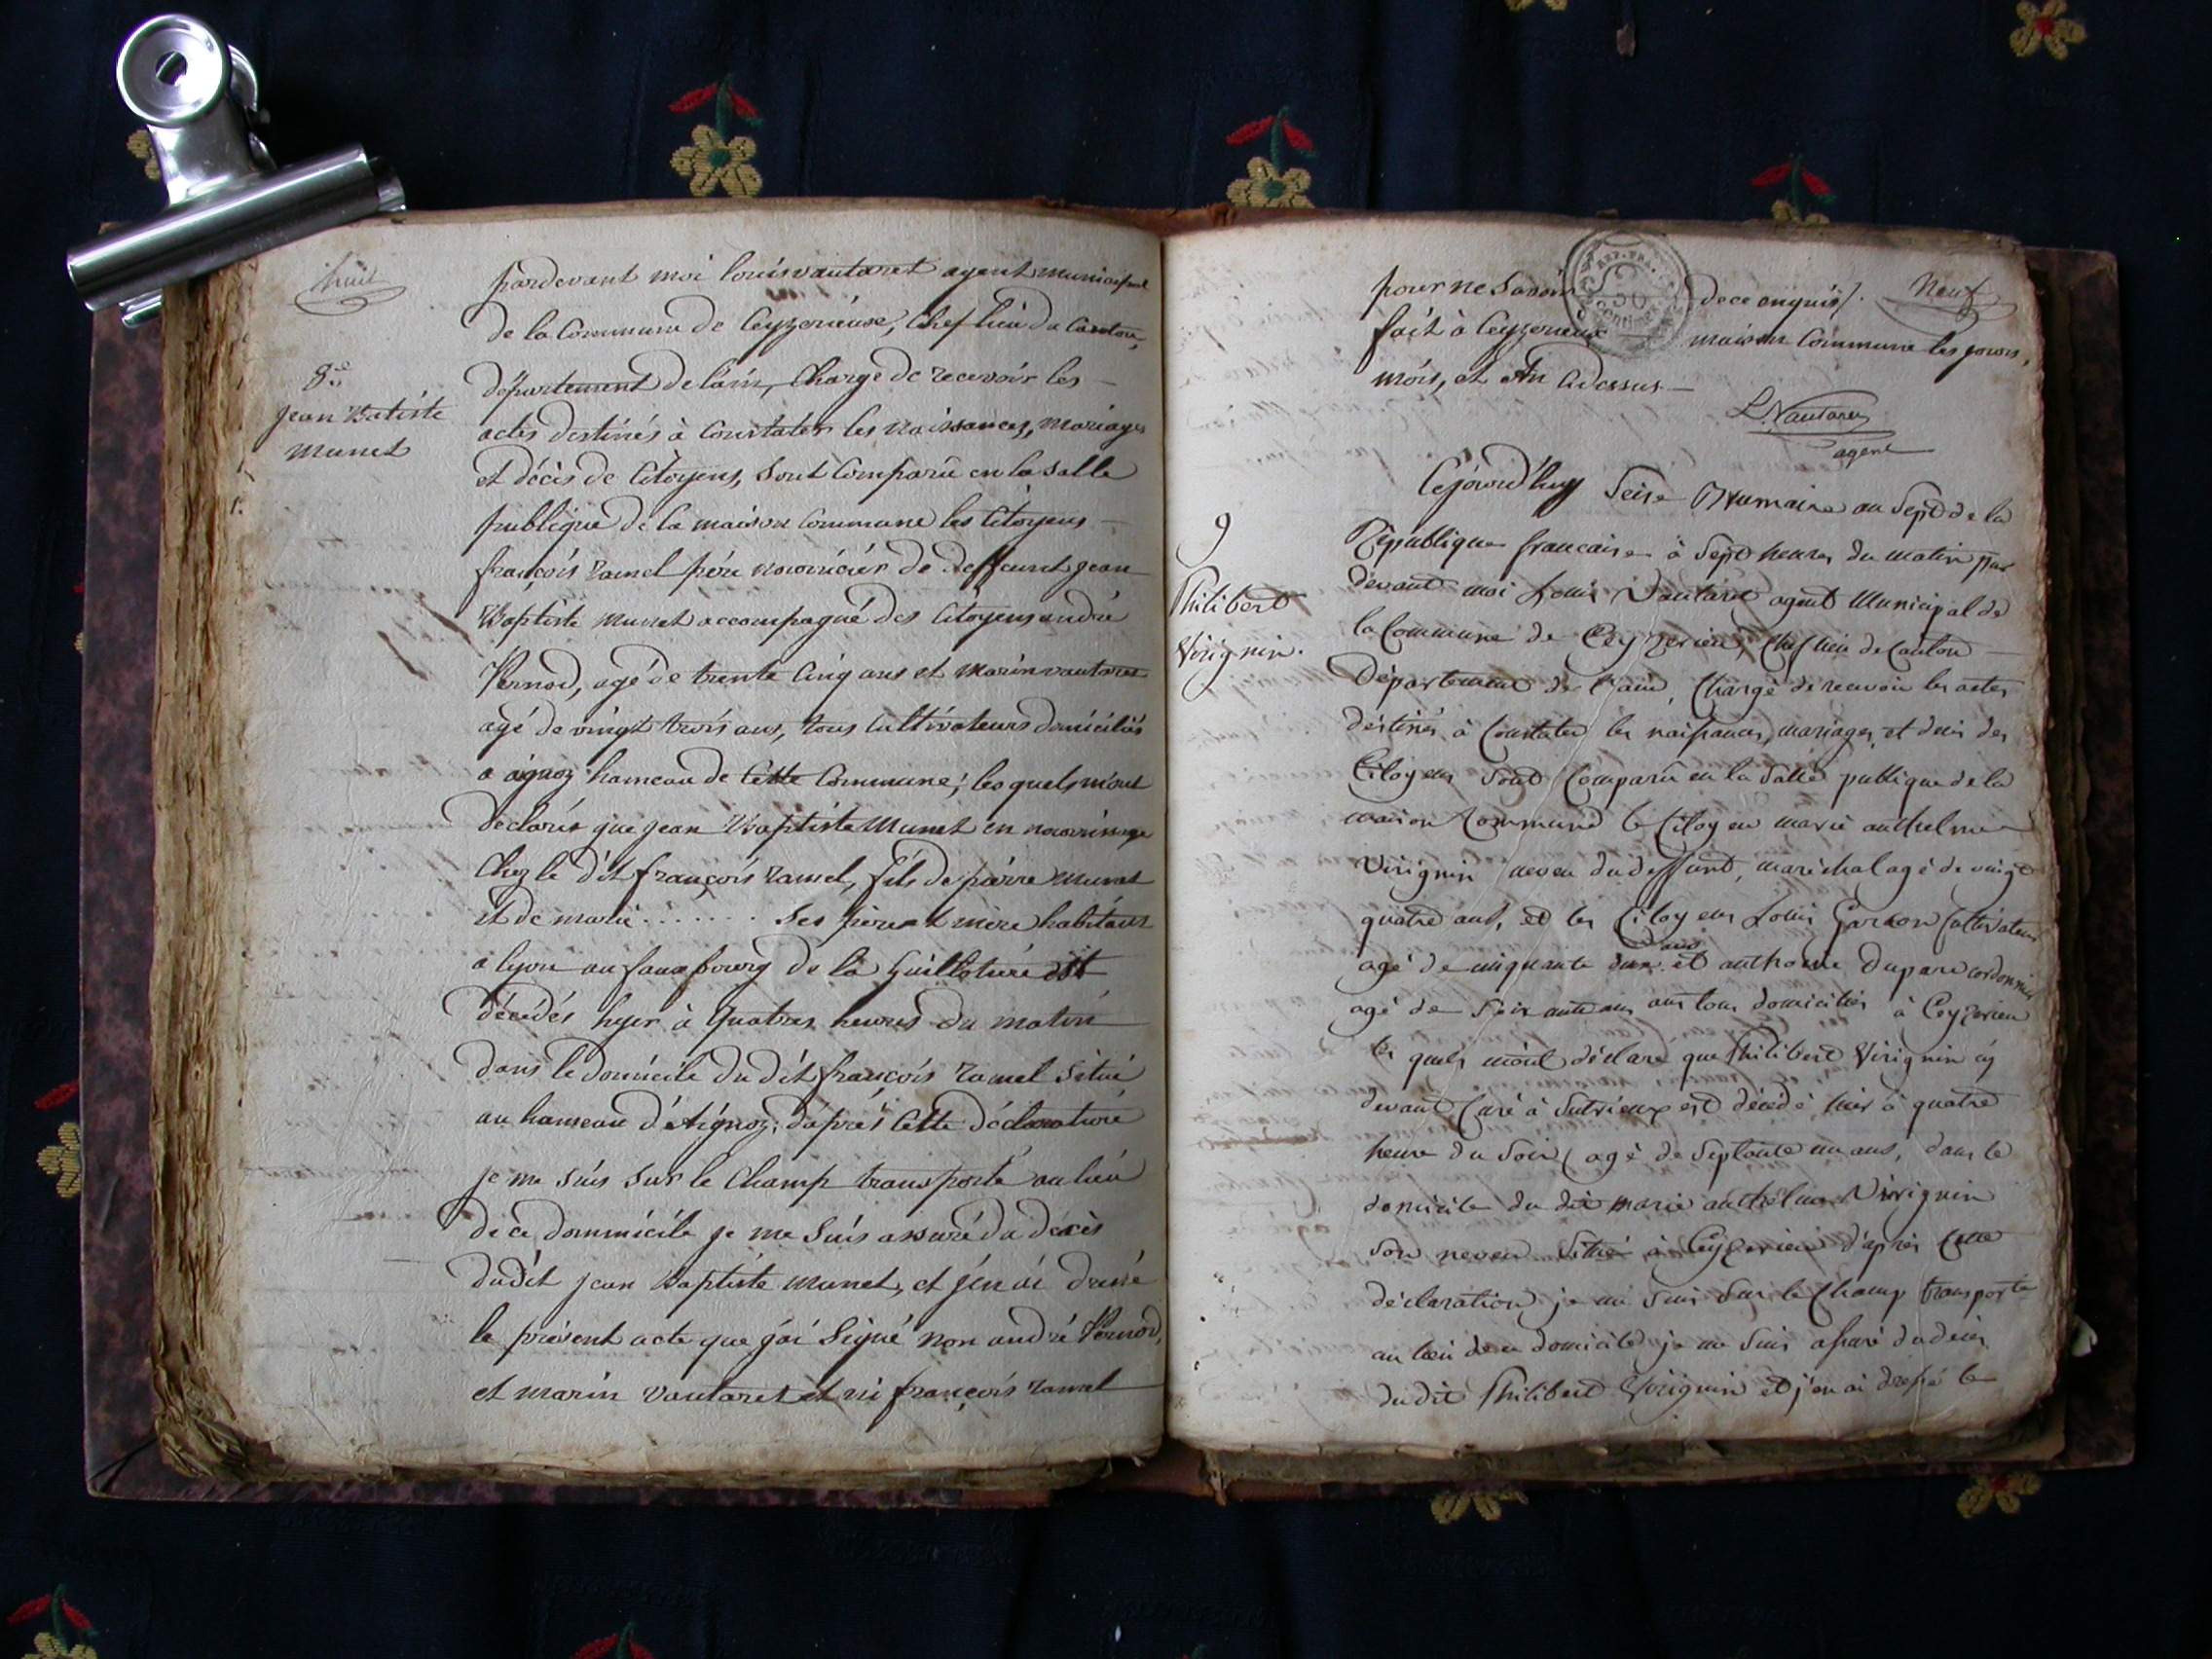 huit
pardevant moi louis vautaret agent municipal
de la Commune de Ceyzerieuse, Chef lieu du Canton,
département de l'ain, Chargé de recevoir les
8.e
jean Batiste
munet
actes destinés à Constater les naissances, mariages
et décès de Citoyens, sont Comparü en la salle
publique de la maison Commune les Citoyens
françois ramel père nourricier de deffeunt jean
Baptiste munet accompagné des Citoyens andré
Pernod, agé de trente Cinq ans et marin vautaret
agé de vingt trois ans, tous Cultivateurs domiciliés
a aignoz hameau de Cette Commune; les quels m'ont
déclarés que jean Baptiste Munet en nourrinage
Chez le dit françois ramel, fils de pierre munet
et de marie ....... ses père et mère habitans
a lyon au faux bourg de la Guillotiere est
décédés hyer à quatres heures du matin
dans le domicile du dit françois ramel situé
au hameau d'Aignoz; d'après Cette déclaration
je me suis sur le Champ transporté au lieu
de ce dommicile je me suis assuré du décès
dudit jean Baptiste munet, et j'en ai dressé
le présent acte que j'ai Signé non andré Pernod,
et marin vautaret et ni françois ramel
pour ne Savoir de ce enquis /.
Neuf
fait à Ceyzerieux maison Commune les jours,
mois, et An Cidessus
L. Vautaret
agent
9
Philibert
Virignin.
Cejourd'huy seise Brumaire an Sept de la
République francaise à Sept heures du matin par
devant moi Louis Vautaret agent Municipal de
la Commune de Ceyzerieu, Chef lieu de Canton
Département de l'ain, Chargé de recevoir les actes
destinés à Constater les naissances, mariages, et decis des
Citoyens sont Comparü en la Salle publique de la
maison Commune le Citoyen marie anthelme
Virignin neveu du deffunt, maréchal agé de vingt
quatre ans, et les Citoyens Louis Garcon Cultivateur
agé de cinquante deux ans et anthoine Duparc cordonnier
agé de soixante ans tous domiciliés à Ceyzerieu
les quels m'ont déclaré que Philibert Virignin cy
devant Curé à Sutrieux est décédé hier à quatre
heure du Soir (agé de Septante un ans, dans le
domicile du dit marie anthelme Virignin
son neveu Situé à Ceyzerieu d'après Cette
déclaration je me suis sur le Champ transporté
au lieu de ce domicile je me suis assuré du decis
du dit Philibert Virignin et j'en ai dressé le